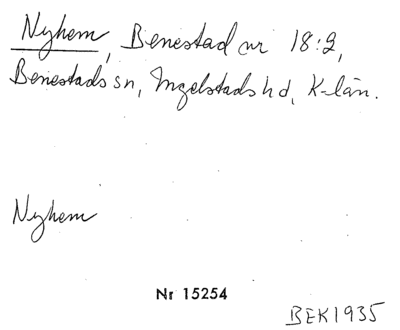 Nyhem, Benestad nr 18:2,
Benestads sn, Ingelstads hd, K-län.
Nyhem
Nr 15254
BEK1935